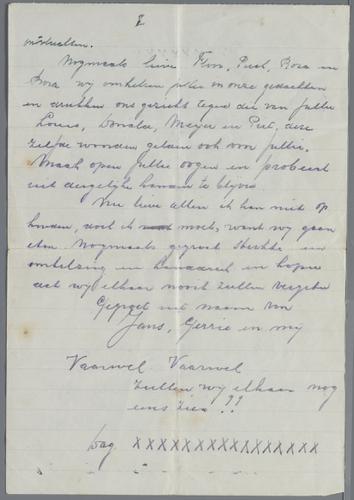 2
Nogmaals lieve Flora, Puck, Roza en
Dora wij omhelzen jullie in onze gedachten
en drukken ons gezicht tegen die van jullie
Louis, Meijer en Piet, deze
zelfde woorden gelden ook voor jullie.
Maak open jullie oogen en probeert
uit dergelijke handen te blijven
Nu lieve allen ik kan niet op
houden, doch ik moet, want wij gaan
eten. Nogmaals gegroet sterkte en
omhelzing en handdruk en hopen
dat wij elkaar nooit zullen vergeten
Gegroet uit naam van
Jans, Gerrie en mij
Vaarwel Vaarwel
Zullen wij elkaar nog
eens zien !!
Dag X X X X X X X X X X X X X X X X